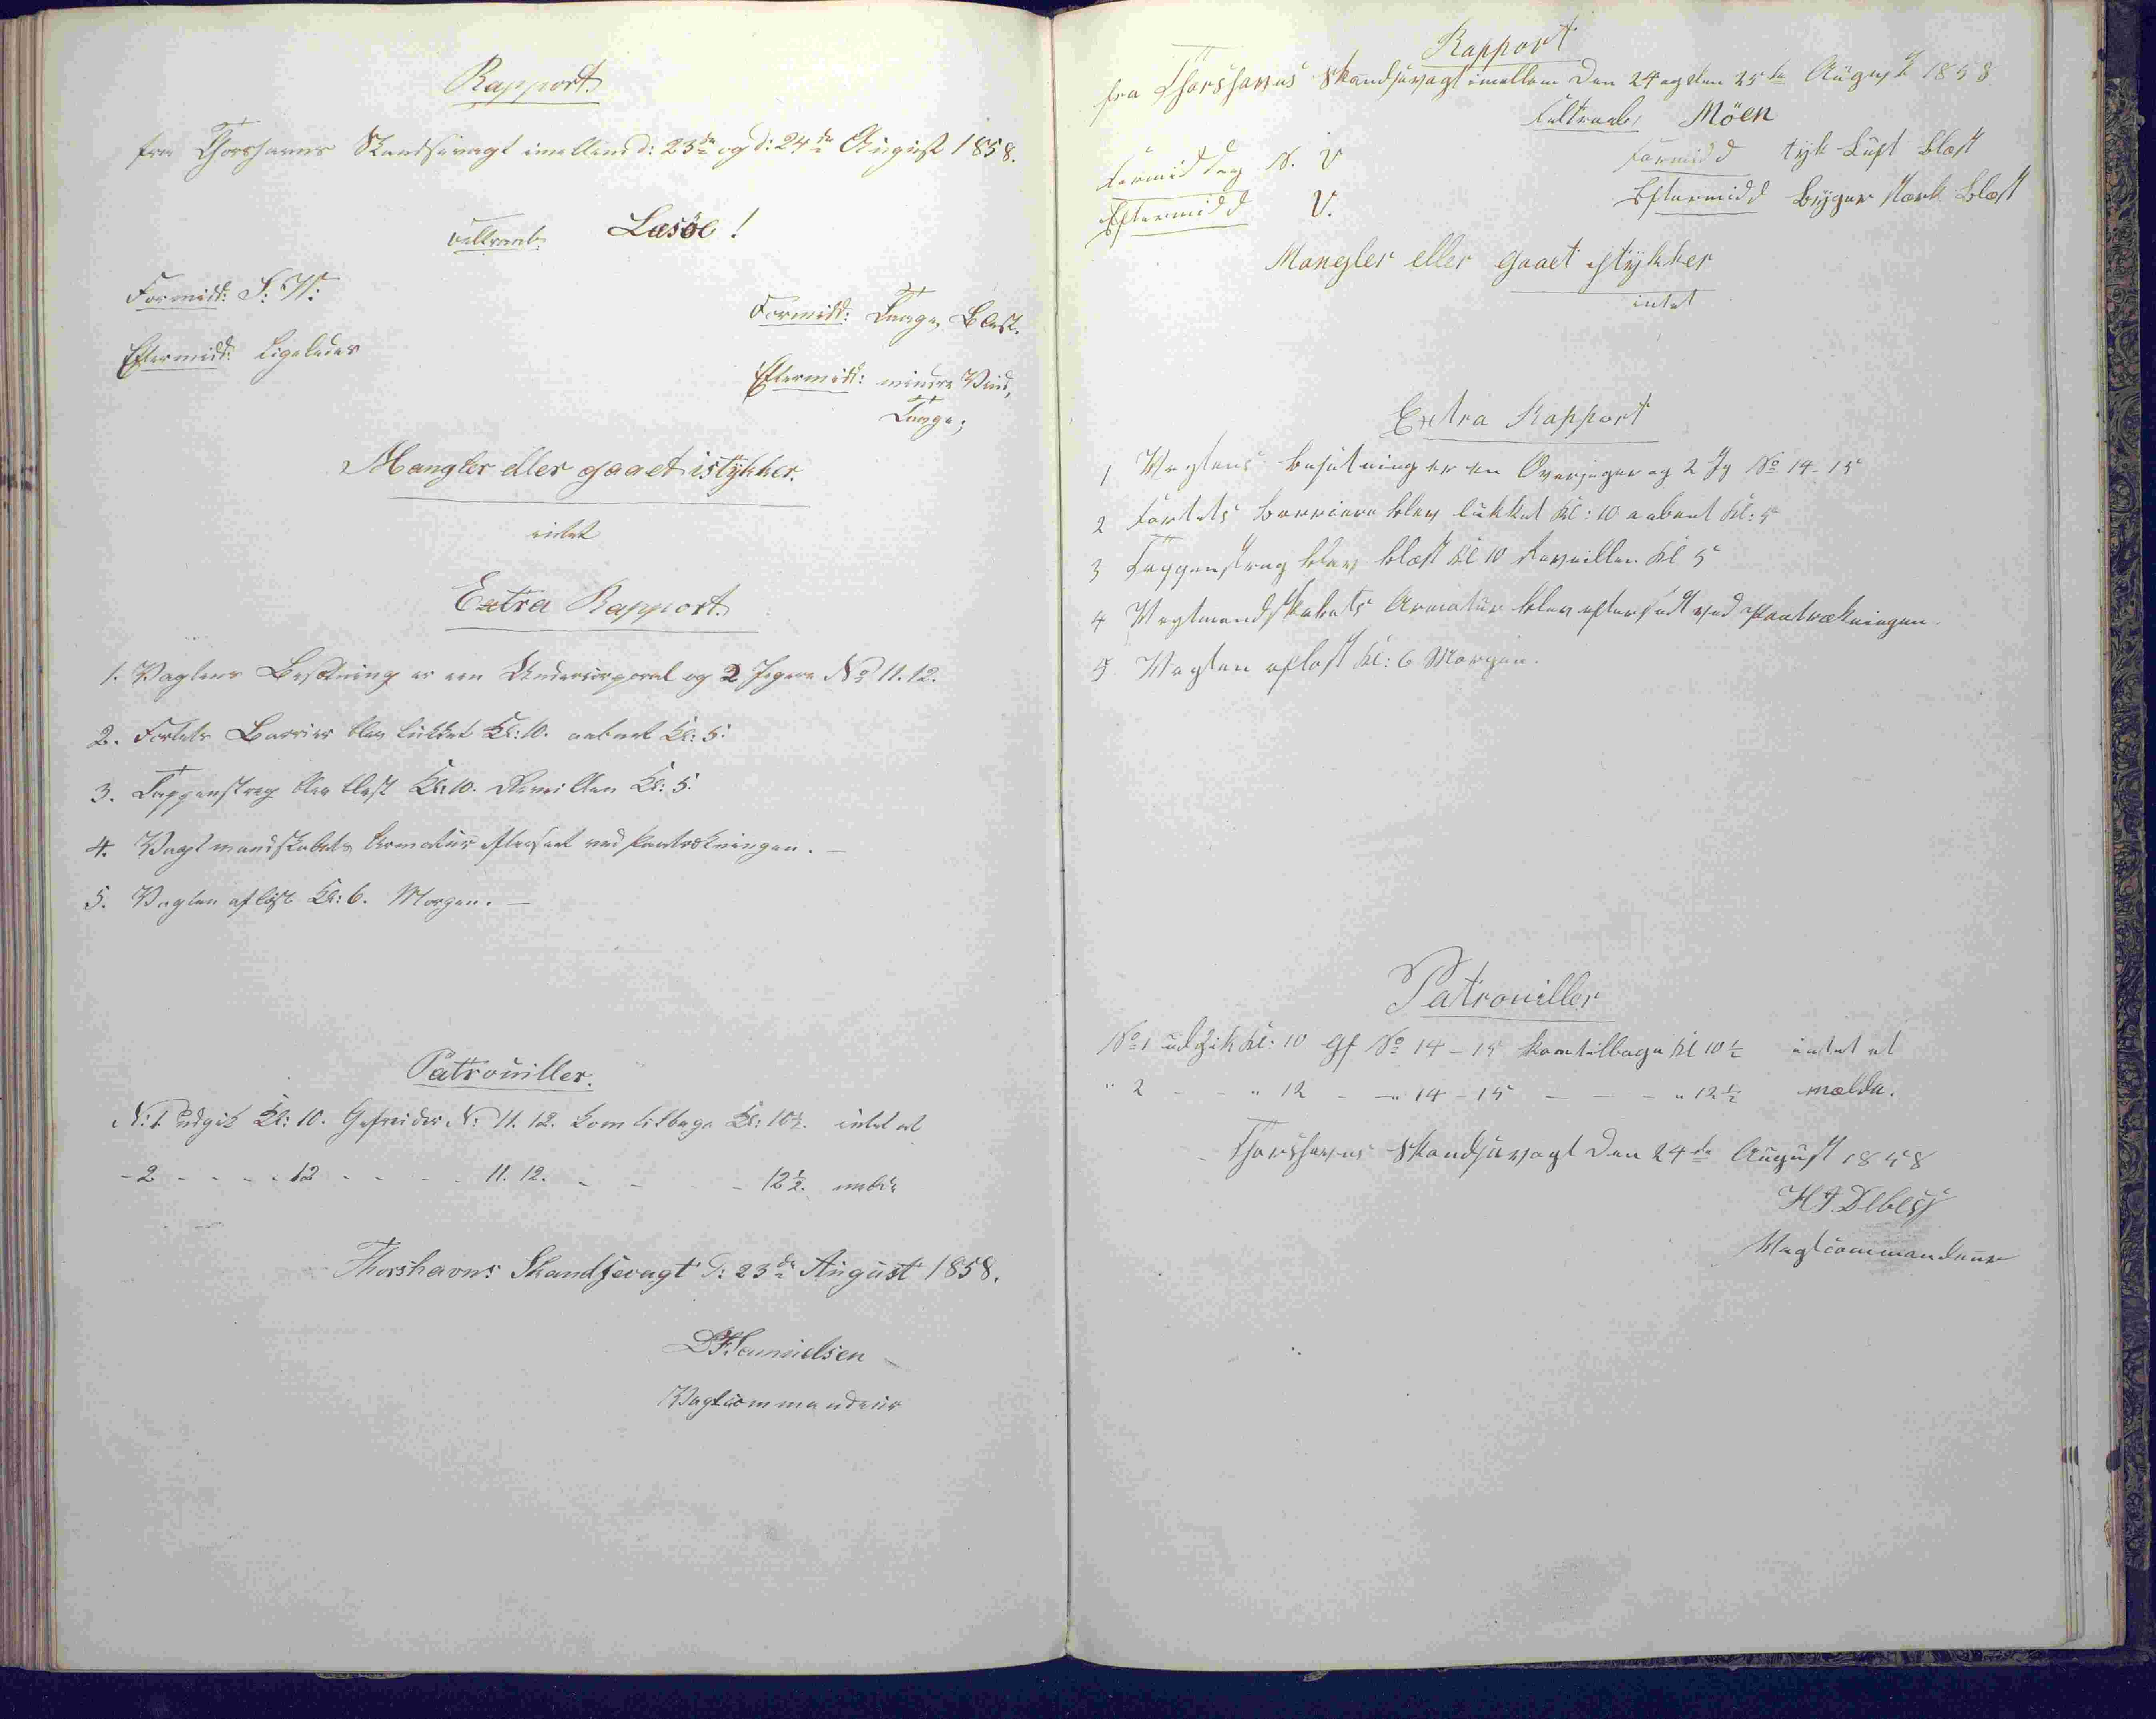 Rapport
fra Thorshavns Skandsevagt imellem d: 23de og d: 24de August 1858.
Feltraab Læsöe!
Formidd: S:V:
Formidd: Taage, Blæst.
Eftermidd: ligeledes
Eftermidd: mindre Vind,
Taage;
Mangler eller gaaet istykker.
intet
Extra Rapport
1. Vagtens Besætning er een Undercorporal og 2 Jægere No 11. 12.
2. Fortets Barrier blev lukket Kl: 10. aabnet Kl: 5.
3. Tappenstreg blev blæst Kl: 10. Reveillen Kl: 5.
4. Vagtmandskabets Armatur efterseet ved Paatrækningen. —
5. Vagten aflöst Kl: 6. Morgen. —
Patrouiller.
N: 1. udgik Kl: 10. Gefreider N: 11. 12. kom tilbage Kl: 10½. intet at
- 2 - - - - 12 - - - 11. 12. - - - 12½. melde
Thorshavns Skandsevagt d: 23de August 1858.
Vagtcommandeur
Rapport
fra Thorshavns Skandsevagt imellem Den 24 og den 25de August 1858
Feltraab Möen
Formiddag N. V
Formidd tyk Luft Blæst
Eftermidd V.
Eftermidd Byger stærk Blæst
Mangler eller gaaet istykker
intet
Extra Rapport
1 Vagtens besætning er en Overjæger og 2 Jg No 14-15
2 Fortets Barriere blev lukket Kl: 10 aabent Kl: 5
3 Tappenstreg blev blæst Kl 10 Reveillen Kl 5
4 Vagtmandskabets Armatur blev efterseet ved Paatrækningen
5 Vagten aflöst Kl: 6 Morgen.
Patrouiller
No 1 udgik Kl: 10 Gf No 14 - 15 kom tilbage Kl 10½ intet at
" 2 - - " 12 - - " 14 - 15 - - - " 12½ mælde.
Thorshavns Skandsevagt Den 24de August 1858
HJ Debess
Vagtcommandeur